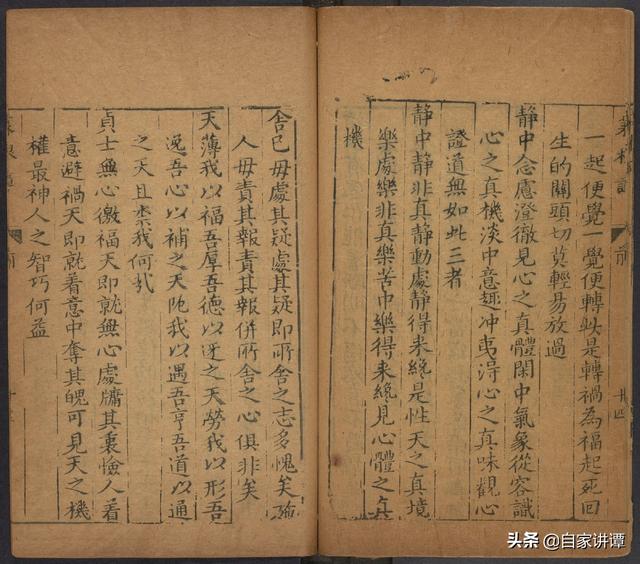 前
廿四
一起便覺一覺便轉此是轉禍為福起死回
生的關頭切莫輕易放過
静中念慮澄徹見心之真體閑中氣象從容識
心之真機淡中意趣冲夷得心之真味觀心
證道無如此三者
静中静非真静動處静得来纔是性天之真境
樂處樂非真樂苦中樂得来纔見心體之真
機
舍已毋處其疑處其疑即所舍之志多愧矣施
人毋責其報責其報併所舍之心俱非矣
天薄我以福吾厚吾德以迓之天勞我以形吾
逸吾心以補之天阨我以遇吾亨吾道以通
之天且柰我何哉
貞士無心徼福天即就無心處牖其衷憸人着
意避禍天即就着意中奪其魄可見天之機
權最神人之智巧何益
前
头条 @自家讲谭